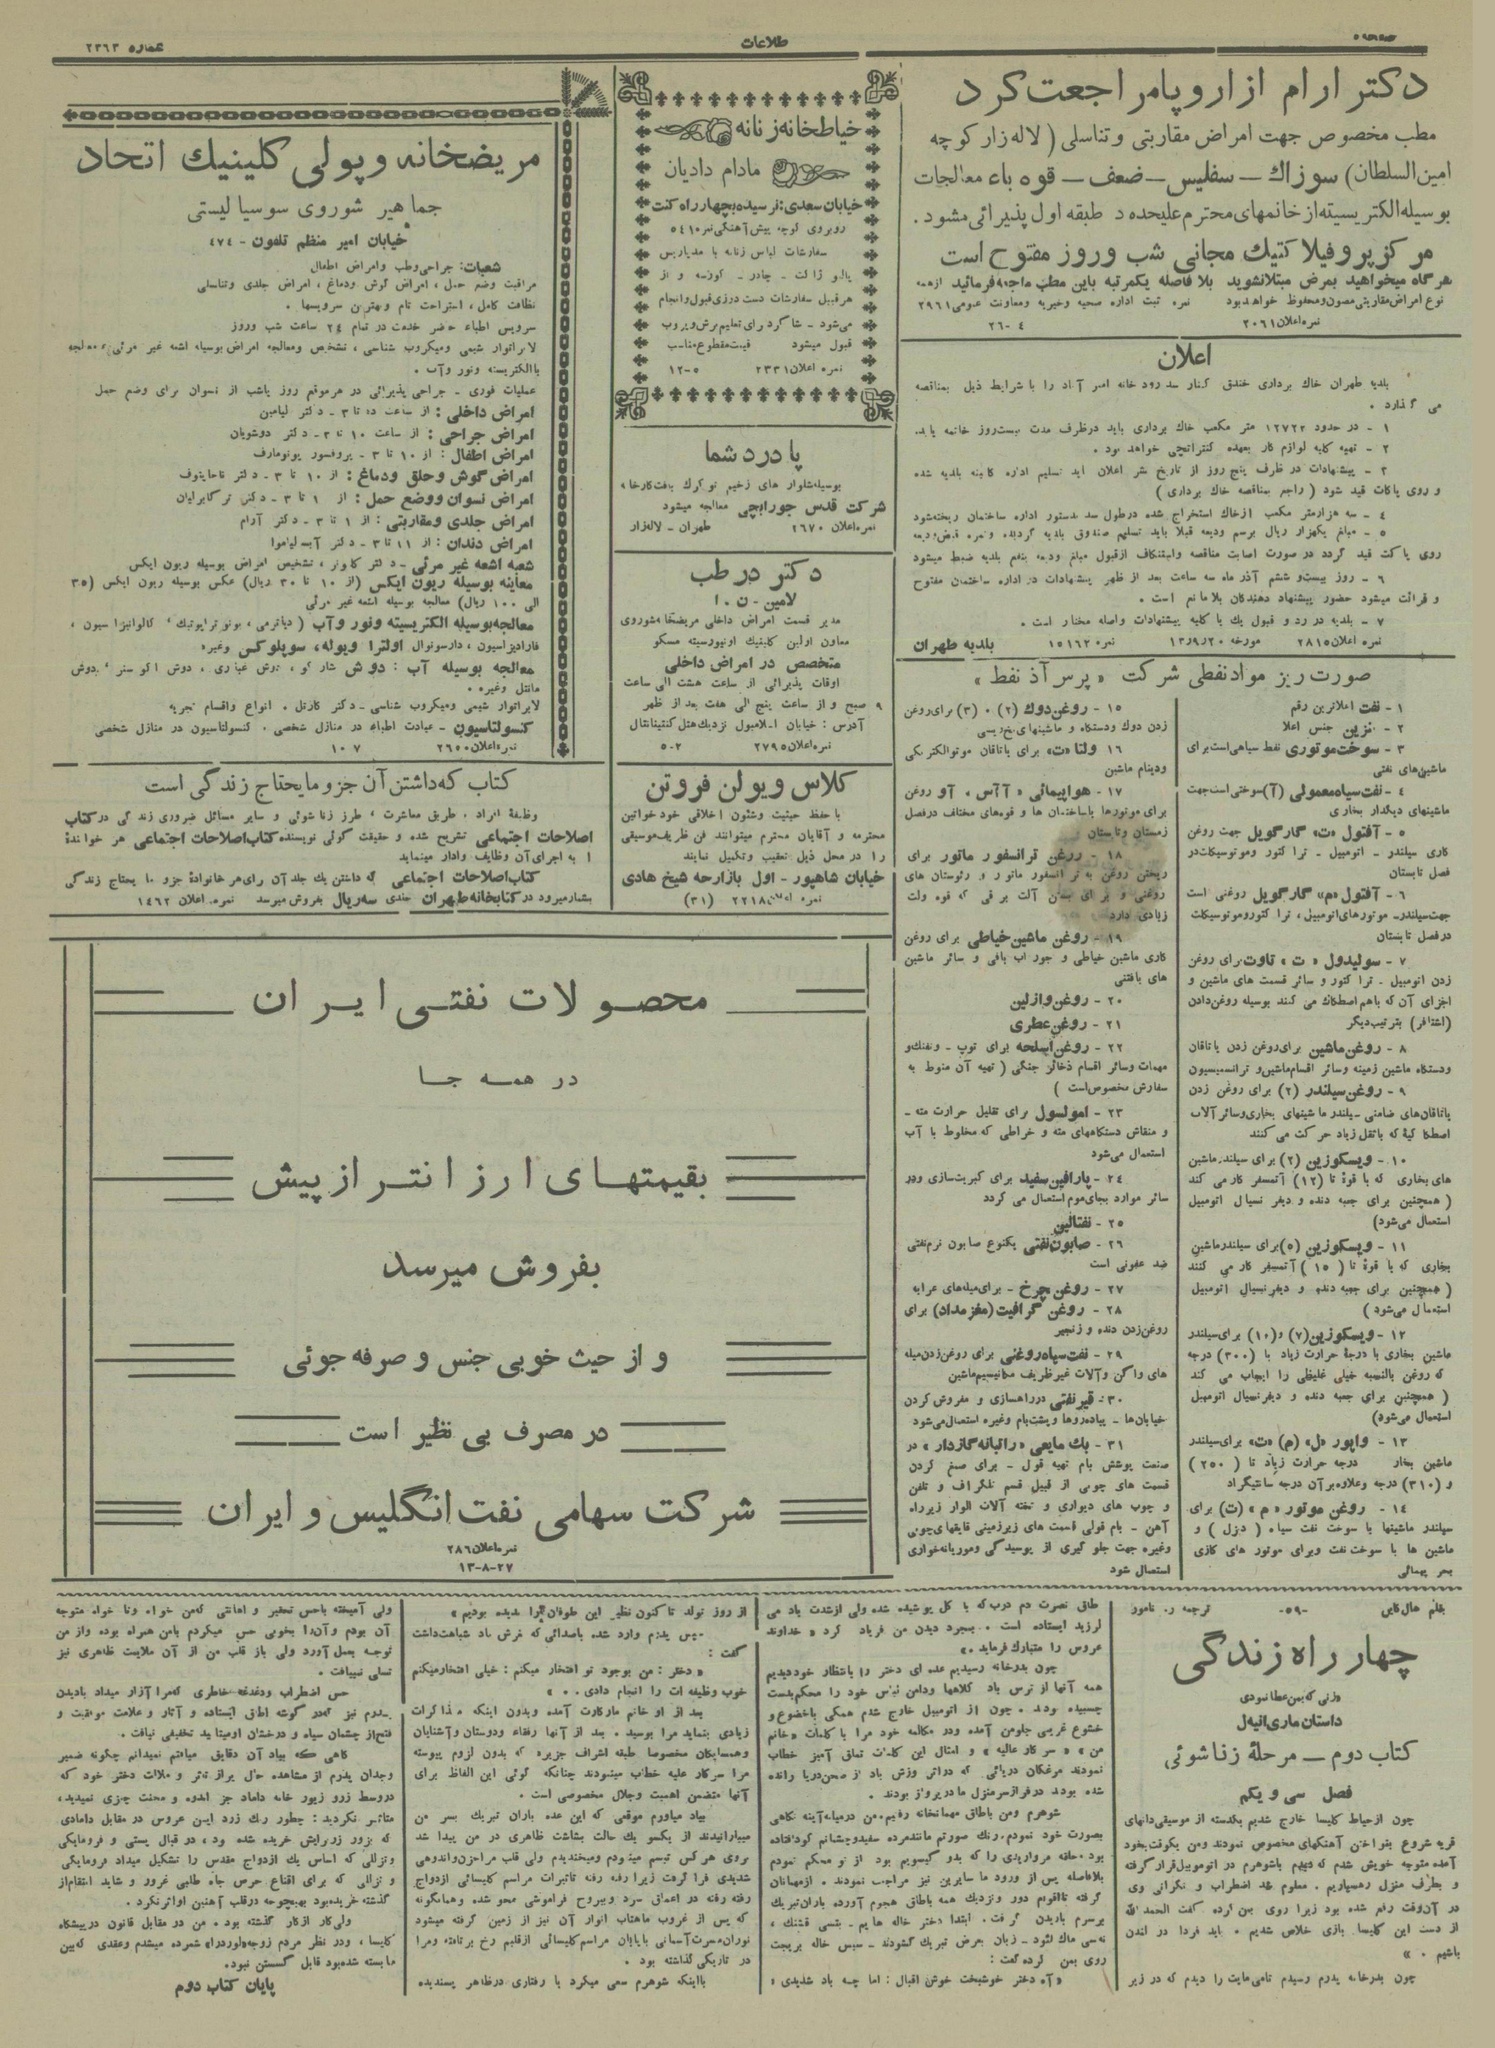 صفحه ۵
طلاعات
شماره ۲۳۶۳
دکتر ارام از اروپا مراجعت کرد
مطب مخصوص جهت امراض مقاربتی و تناسلی ( لاله زار کوچه
امین السلطان) سوزاك – سفلیس – ضعف – قوه باء معالجات
بوسیله الکتریسیته از خانمهای محترم علیحده د طبقه اول پذیرائی میشود.
مرکز پروفیلاکتیك مجانی شب وروز مفتوح است
هر گاه میخواهید بمرض مبتلا نشوید بلا فاصله یکمرتبه باین مطب مراجعه فرمائید از همه
نوع امراض مقاربتی مصون و محفوظ خواهد بود نمره ثبت اداره صحیه و خیریه ومعاونت عمومی ۲۹۶۱
نمره اعلان ۲۰۶۱ ۴-۲۶
اعلان
بلدیه طهران خاك برداری خندق کنار سد رود خانه امیر آباد را با شرایط ذیل بمناقصه
می گذارد .
۱ - در حدود ۱۲۷۲۲ متر مکعب خاك برداری باید درظرف مدت بیست روز خاتمه یابد.
۲ - تهیه کلیه لوازم کار بعهده کنتراتچی خواهد بود .
۳ - پیشنهادات در ظرف پنج روز از تاریخ نشر اعلان باید تسلیم اداره کابینه بلدیه شده
و روی پاکات قید شود ( راجع بمناقصه خاك برداری )
۴ - سه هزار متر مکعب از خاك استخراج شده در طول سد بدستور اداره ساختمان ریخته شود
۵ - مبلغ یکهزار ریال برسم ودیعه قبلا باید تسلیم صندوق بلدیه گردیده و نمره قبض ودیعه
روی پاکت قید گردد در صورت اصابت مناقصه واستنکاف از قبول مبلغ ودیعه بنفع بلدیه ضبط میشود
۶ - روز بیست و ششم آذر ماه سه ساعت بعد از ظهر پیشنهادات در اداره ساختمان مفتوح
و قرائت میشود حضور پیشنهاد دهندگان بلا مانع است .
۷ - بلدیه در رد و قبول یك یا کلیه پیشنهادات واصله مختار است .
نمره اعلان ۲۸۱۵ مورخه ۱۳/۹/۲۰ نمره ۱۵۱۶۲ بلدیه طهران
صورت ریز مواد نفطی شرکت « پرس آذ نفط »
۱ - نفت اعلاترین رقم
۲ - بنزین جنس اعلا
۳ - سوخت موتوری نفط سیاهی است برای
ماشین های نفتی
۴ - نفت سیاه معمولی (آ) سوختی است جهت
ماشینهای دیگدار بخاری
۵ - آفتول «ت» گارگویل جهت روغن
کاری سیلندر - اتومبیل - ترا کتور وموتوسیکلت در
فصل تابستان
۶ - آفتول «م» گارگویل روغنی است
جهت سیلندر- موتورهای اتومبیل ، ترا کتور و موتوسیکلت
در فصل تابستان
۷ - سولیدول « ت » تاوت برای روغن
زدن اتومبیل - ترا کتور و سائر قسمت های ماشین و
اجزای آن که باهم اصطکاك می کنند بوسیله روغن دادن
(اشتافر) بترتیب دیگر
۸ - روغن ماشین برای روغن زدن یاتاقان
ودستگاه ماشین زمینه وسائر اقسام ماشین و ترانسمیسیون
۹ - روغن سیلندر (۲) برای روغن زدن
یاتاقان های ضامنی - سیلندر ماشینهای بخاری وسائر آلات
اصطکاکیۀ که باثقل زیاد حرکت می کنند
۱۰ - ویسکوزین (۲) برای سیلندر ماشین
های بخاری که با قوۀ تا (۱۲) آتمسفر کار می کند
( همچنین برای جعبه دنده و دیفر نسیال اتومبیل
استعمال می شود)
۱۱ - ویسکوزین (۵) برای سیلندر ماشین
بخاری که با قوۀ تا ( ۱۵ ) آتمسفر کار می کنند
( همچنین برای جعبه دنده و دیفر نسیال اتومبیل
استعمال می شود )
۱۲ - ویسکوزین (۷) و (۱۰) برای سیلندر
ماشین بخاری با درجۀ حرارت زیاد با (۳۰۰) درجه
که روغن بالنسبه خیلی غلیظی را ایجاب می کند
( همچنین برای جعبه دنده و دیفر نسیال اتومبیل
استعمال می شود)
۱۳ - واپور «ل» (م) «ت» برای سیلندر
ماشین بخار درجه حرارت زیاد تا ( ۲۵۰ )
و (۳۱۰) درجه وعلاوه بر آن درجه سانتیگراد
۱۴ - روغن موتور « م » (ت) برای
سیلندر ماشینها با سوخت نفت سیاه ( دیزل ) و
ماشین ها با سوخت نفت وبرای موتور های گازی
بحر پیمائی
۱۵ - روغن دوك (۲) ۰ (۳) برای روغن
زدن دوك ودستگاه و ماشینهای نخ ریسی
۱۶ - ولتا «ت» برای یاتاقان موتوالکتریکی
ودینام ماشین
۱۷ - هواپیمائی « آآس ، آو روغن
برای موتورها باساختمان ها و قوه های مختلف در فصل
زمستان وتابستان
۱۸ - روغن ترانسفور ماتور برای
ریختن روغن به ترانسفور ماتور و رئوستان های
روغنی و برای بعضی آلت برقی که قوه ولت
زیادی دارد
۱۹ - روغن ماشین خیاطی برای روغن
کاری ماشین خیاطی و جوراب بافی و سائر ماشین
های بافتنی
۲۰ - روغن وازلین
۲۱ - روغن عطری
۲۲ - روغن اسلحه برای توپ - وتفنك و
مهمات وسائر اقسام ذخائر جنگی ( تهیه آن منوط به
سفارش مخصوص است )
۲۳ - امولسول برای تقلیل حرارت مته -
و منقاش دستگاههای مته و خراطی که مخلوط با آب
استعمال می شود
۲۴ - پارافین سفید برای کبریت سازی ودر
سائر موارد بجای موم استعمال می گردد
۲۵ - نفتالین
۲۶ - صابون نفتی یکنوع صابون نرم نفتی
ضد عفونی است
۲۷ - روغن چرخ - برای میله های عرابه
۲۸ - روغن گرافیت (مغز مداد) برای
روغن زدن دنده و زنجیر
۲۹ - نفت سیاه روغنی برای روغن زدن میله
های واگن و آلات غیر ظریف مکانیسیم ماشین
۳۰- قیر نفتی در راهسازی و مفروش کردن
خیابان ها - پیاده روها و پشت بام وغیره استعمال می شود
۳۱ - بك مایعی «راتبانه گازدار» در
صنعت پوشش بام تهیه قول - برای صمغ کردن
قسمت های چوبی از قبیل قسم تلگراف و تلفن
و چوب های دیواری و تخته آلات الوار زیر راه
آهن - بام قولی قسمت های زیرزمینی قایقهای چوبی
وغیره جهت جلوگیری از پوسیدگی و موریانه خواری
استعمال شود
خیاطخانه زنانه
مادام دادیان
خیابان سعدی: نرسیده بچهار راه کنت
روبروی کوچه پیش آهنگی نمره ۵۴۱۰
سفارشات لباس زنانه با مد پاریس
پالتو ژاکت - چادر - کورسه و از
هر قبیل سفارشات دست دوزی قبول و انجام
می شود - شاگرد برای تعلیم برش و پروب
قبول میشود قیمت مقطوع مناسب
نمره اعلان ۲۳۳۱ ۵-۱۲
پا درد شما
بوسیله شلوار های زخیم نو کرك بافت کارخانه
شرکت قدس جورابچی معالجه میشود
نمره اعلان ۲۶۷۰ طهران - لاله زار
دکتر در طب
لامین - ن . ا
مدیر قسمت امراض داخلی مریضخانه شوروی
معاون اولین کلینیك اونیورسیته مسکو
متخصص در امراض داخلی
اوقات پذیرائی از ساعت هشت الی ساعت
۹ صبح و از ساعت پنج الی هفت بعد از ظهر
آدرس : خیابان اسلامبول نزدیك هتل کنتینانتال
نمره اعلان ۲۷۹۵ ۲-۵
کلاس ویولن فروتن
با حفظ حیثیت وشئون اخلاقی خود خواتین
محترمه و آقایان محترم میتوانند فن ظریف موسیقی
را در محل ذیل تعقیب وتکمیل نمایند
خیابان شاهپور - اول بازارچه شیخ هادی
نمره اعلان ۲۲۱۸ (۳۱)
مریضخانه و پولی کلینیك اتحاد
جماهیر شوروی سوسیالیستی
خیابان امیر منظم تلفون - ۴۷۴
شعبات: جراحی وطب وامراض اطفال
مراقبت وضع حمل ، امراض گوش ودماغ ، امراض جلدی وتناسلی
نظافت کامل ، استراحت تام وبهترین سرویسها .
سرویس اطباء حاضر خدمت در تمام ۲۴ ساعت شب وروز
لابراتوار شیمی ومیکروب شناسی ، تشخیص ومعالجه امراض بوسیله اشعه غیر مرئی و معالجه
باالکتریسته ونور وآب .
عملیات فوری - جراحی پذیرائی در هر موقع روز یاشب از نسوان برای وضع حمل
امراض داخلی : از ساعت ده تا ۳ - دکتر لیامین
امراض جراحی : از ساعت ۱۰ تا ۳ - دکتر دوشویان
امراض اطفال : از ۱۰ تا ۳ - پروفسور بونومارف
امراض گوش وحلق ودماغ : از ۱۰ تا ۳ - دکتر ناحاپتوف
امراض نسوان ووضع حمل : از ۱ تا ۳ - دکتر ترگابرلیان
امراض جلدی و مقاربتی : از ۱ تا ۳ - دکتر آرام
امراض دندان : از ۱۱ تا ۳ - دکتر
شعبه اشعه غیر مرئی - دکتر ، تشخیص امراض بوسیله ریون ایکس
معاینه بوسیله ریون ایکس (از ۱۰ تا ۳۰ ریال) عکس بوسیله ریون ایکس (۳۵
الی ۱۰۰ ریال) معالجه بوسیله اشعه غیر مرئی
معالجه بوسیله الکتریسیته ونور وآب ( دیاترمی ، یونوترابوتیك ، کالوانیزاسیون ،
فارادیزاسیون ، دارسونوال اولترا ویوله، سوپلوکس وغیره
معالجه بوسیله آب : دوش شارکو ، دوش غباری ، دوش اکوسنر ، دوش
مانتل وغیره .
لابراتوار شیمی ومیکروب شناسی - دکتر کارتل . انواع واقسام تجزیه
کنسولتاسیون - عیادت اطباء در منازل شخصی . کنسولتاسیون در منازل شخصی
نمره اعلان ۲۶۵۰ ۷ ۱۰
کتاب که داشتن آن جزو مایحتاج زندگی است
وظیفۀ افراد . طریق معاشرت ، طرز زناشوئی و سایر مسائل ضروری زندگی در کتاب
اصلاحات اجتماعی تشریح شده و حقیقت گوئی نویسنده کتاب اصلاحات اجتماعی هر خوانندۀ
را به اجرای آن وظایف وادار مینماید
کتاب اصلاحات اجتماعی که داشتن یك جلد آن برای هر خانوادۀ جزو مایحتاج زندگی
بشمار میرود در کتابخانه طهران جلدی سه ریال بفروش میرسد نمره اعلان ۱۴۶۲
محصولات نفتی ایران
در همه جا
بقیمتهای ارزانتر از پیش
بفروش میرسد
و از حیث خوبی جنس و صرفه جوئی
در مصرف بی نظیر است
شرکت سهامی نفت انگلیس و ایران
نمره اعلان ۲۸۶
۱۳-۸-۲۷
بقلم هال کاین -۵۹- ترجمه ر. نامور
چهار راه زندگی
«زنی که بمن عطا نمودی
داستان ماری انیه ل
کتاب دوم – مرحلۀ زناشوئی
فصل سی و یکم
چون از حیاط کلیسا خارج شدیم یکدسته از موسیقی دانهای
قریه شروع بنواختن آهنگهای مخصوص نمودند ومن یکوقت بخود
آمده متوجه خویش شدم که دیدم باشوهرم در اتوموبیل قرار گرفته
و بطرف منزل رهسپاریم . معلوم شد اضطراب و نگرانی وی
در آن وقت رفع شده بود زیرا روی بمن کرده گفت الحمد الله
از دست این کلیسا بازی خلاص شدیم . باید فردا در لندن
باشیم . »
چون بدرخانه پدرم رسیدم تامی مایت را دیدم که در زیر
طاق نصرت دم درب که با گل پوشیده شده ولی از شدت باد می
لرزید ایستاده است . بمجرد دیدن من فریاد کرد « خداوند
عروس را متبارك فرماید .»
چون بدرخانه رسیدیم عده ای دختر را بانتظار خود دیدیم
همه آنها از ترس باد کلاهها ودامن لباس خود را محکم بدست
چسبیده بودند . چون از اتومبیل خارج شدم همگی باخضوع و
خشوع غریبی جلو من آمده ودر مکالمه خود مرا با کلمات « خانم
من » « سرکار عالیه » و امثال این کلمات تملق آمیز خطاب
نمودند مرغکان دریائی که در اثر وزش باد از صحن دریا رانده
شده بودند در فراز سر منزل ما در پرواز بودند .
شوهرم ومن باطاق مهمانخانه رفتیم . من در میان آینه نگاهی
بصورت خود نمودم . رنك صورتم مانند مرده سفید و چشمانم گود افتاده
بود . حلقه مرواریدی را که بدور گیسویم بود از نو محکم نمودم
بلافاصله پس از ورود ما سایرین نیز مراجعت نمودند . از مهمانان
گرفته تا اقوام دور ونزدیك همه باطاق هجوم آورده باران تبریك
برسرم باریدن گرفت . ابتدا دختر خاله هایم - بتسی قشنك ،
نه سی ماك لئود - زبان بعرض تبریك گشودند - سپس خاله بریجت
روی بمن کرده گفت :
« آه دختر خوشبخت خوش اقبال : اما چه باد شدیدی »
از روز تولد تا کنون نظیر این طوفان را ندیده بودیم »
سپس پدرم وارد شده باصدائی که غرش باد شباهت داشت
گفت :
« دختر : من بوجود تو افتخار میکنم : خیلی افتخار میکنم
خوب وظیفه ات را انجام دادی . . »
بعد از او خانم مارکارت آمده وبدون اینکه مذاکرات
زیادی بنماید مرا بوسید . بعد از آنها رفقاء ودوستان و آشنایان
وهمسایگان مخصوصا طبقه اشراف جزیره که بدون لزوم پیوسته
مرا سرکار علیه خطاب مینمودند چنانکه گوئی این الفاظ برای
آنها متضمن اهمیت وجلال مخصوصی است .
بیاد میاورم موقعی که این عده باران تبریك بسر من
میبارانیدند از یکسو یك حالت بشاشت ظاهری در من پیدا شد
بروی هر کس تبسم مینمودم ومیخندیدم ولی قلب مرا حزن و اندوهی
شدیدی فرا گرفت زیرا رفته رفته تاثیرات مراسم کلیسائی ازدواج
رفته رفته در اعماق سرد وبیروح فراموشی محو شده وهمانگونه
که پس از غروب ماهتاب انوار آن نیز از زمین گرفته میشود
نوران مسرت آسمانی باپایان مراسم کلیسائی از قلبم رخ برتافته ومرا
در تاریکی گذاشته بود .
بااینکه شوهرم سعی میکرد با رفتاری در ظاهر پسندیده
ولی آمیخته باحس تحقیر و اهانتی که من خواه ونا خواه متوجه
آن بودم وآن را بخوبی حس میکردم بامن همراه بوده واز من
توجه بعمل آورد ولی باز قلب من از آن ملایمت ظاهری نیز
تسلی نمییافت .
حس اضطراب ودغدغه خاطری که مرا آزار میداد بادیدن
پدرم نیز که در گوشه اطاق ایستاده و آثار و علامت موفقیت و
فتح از چشمان سیاه و درخشان او میتابید تخفیفی نیافت .
گاهی که بیاد آن دقایق میافتم نمیدانم چگونه ضمیر
وجدان پدرم از مشاهده حال پر از تاثر و ملالت دختر خود که
در وسط زرو زیور خانه داماد جز اندوه و محنت چیزی نمیدید،
متاثر نگردید : چطور رنك زرد این عروس در مقابل دامادی
که بزور زر برایش خریده شده بود ، در قبال پستی و فرومایگی
ونزللی که اساس یك ازدواج مقدس را تشکیل میداد فرومایگی
و نزللی که برای اقناع حرص جاه طلبی غرور و شاید انتقام از
گذشته خریده بود بهیچوجه در قلب آهنین او اثر نکرد .
ولی کار از کار گذشته بود . من در مقابل قانون در پیشگاه
کلیسا ، ودر نظر مردم زوجه «لورد را» شمرده میشدم و عقدی که بین
ما بسته شده بود قابل گسستن نبود.
پایان کتاب دوم